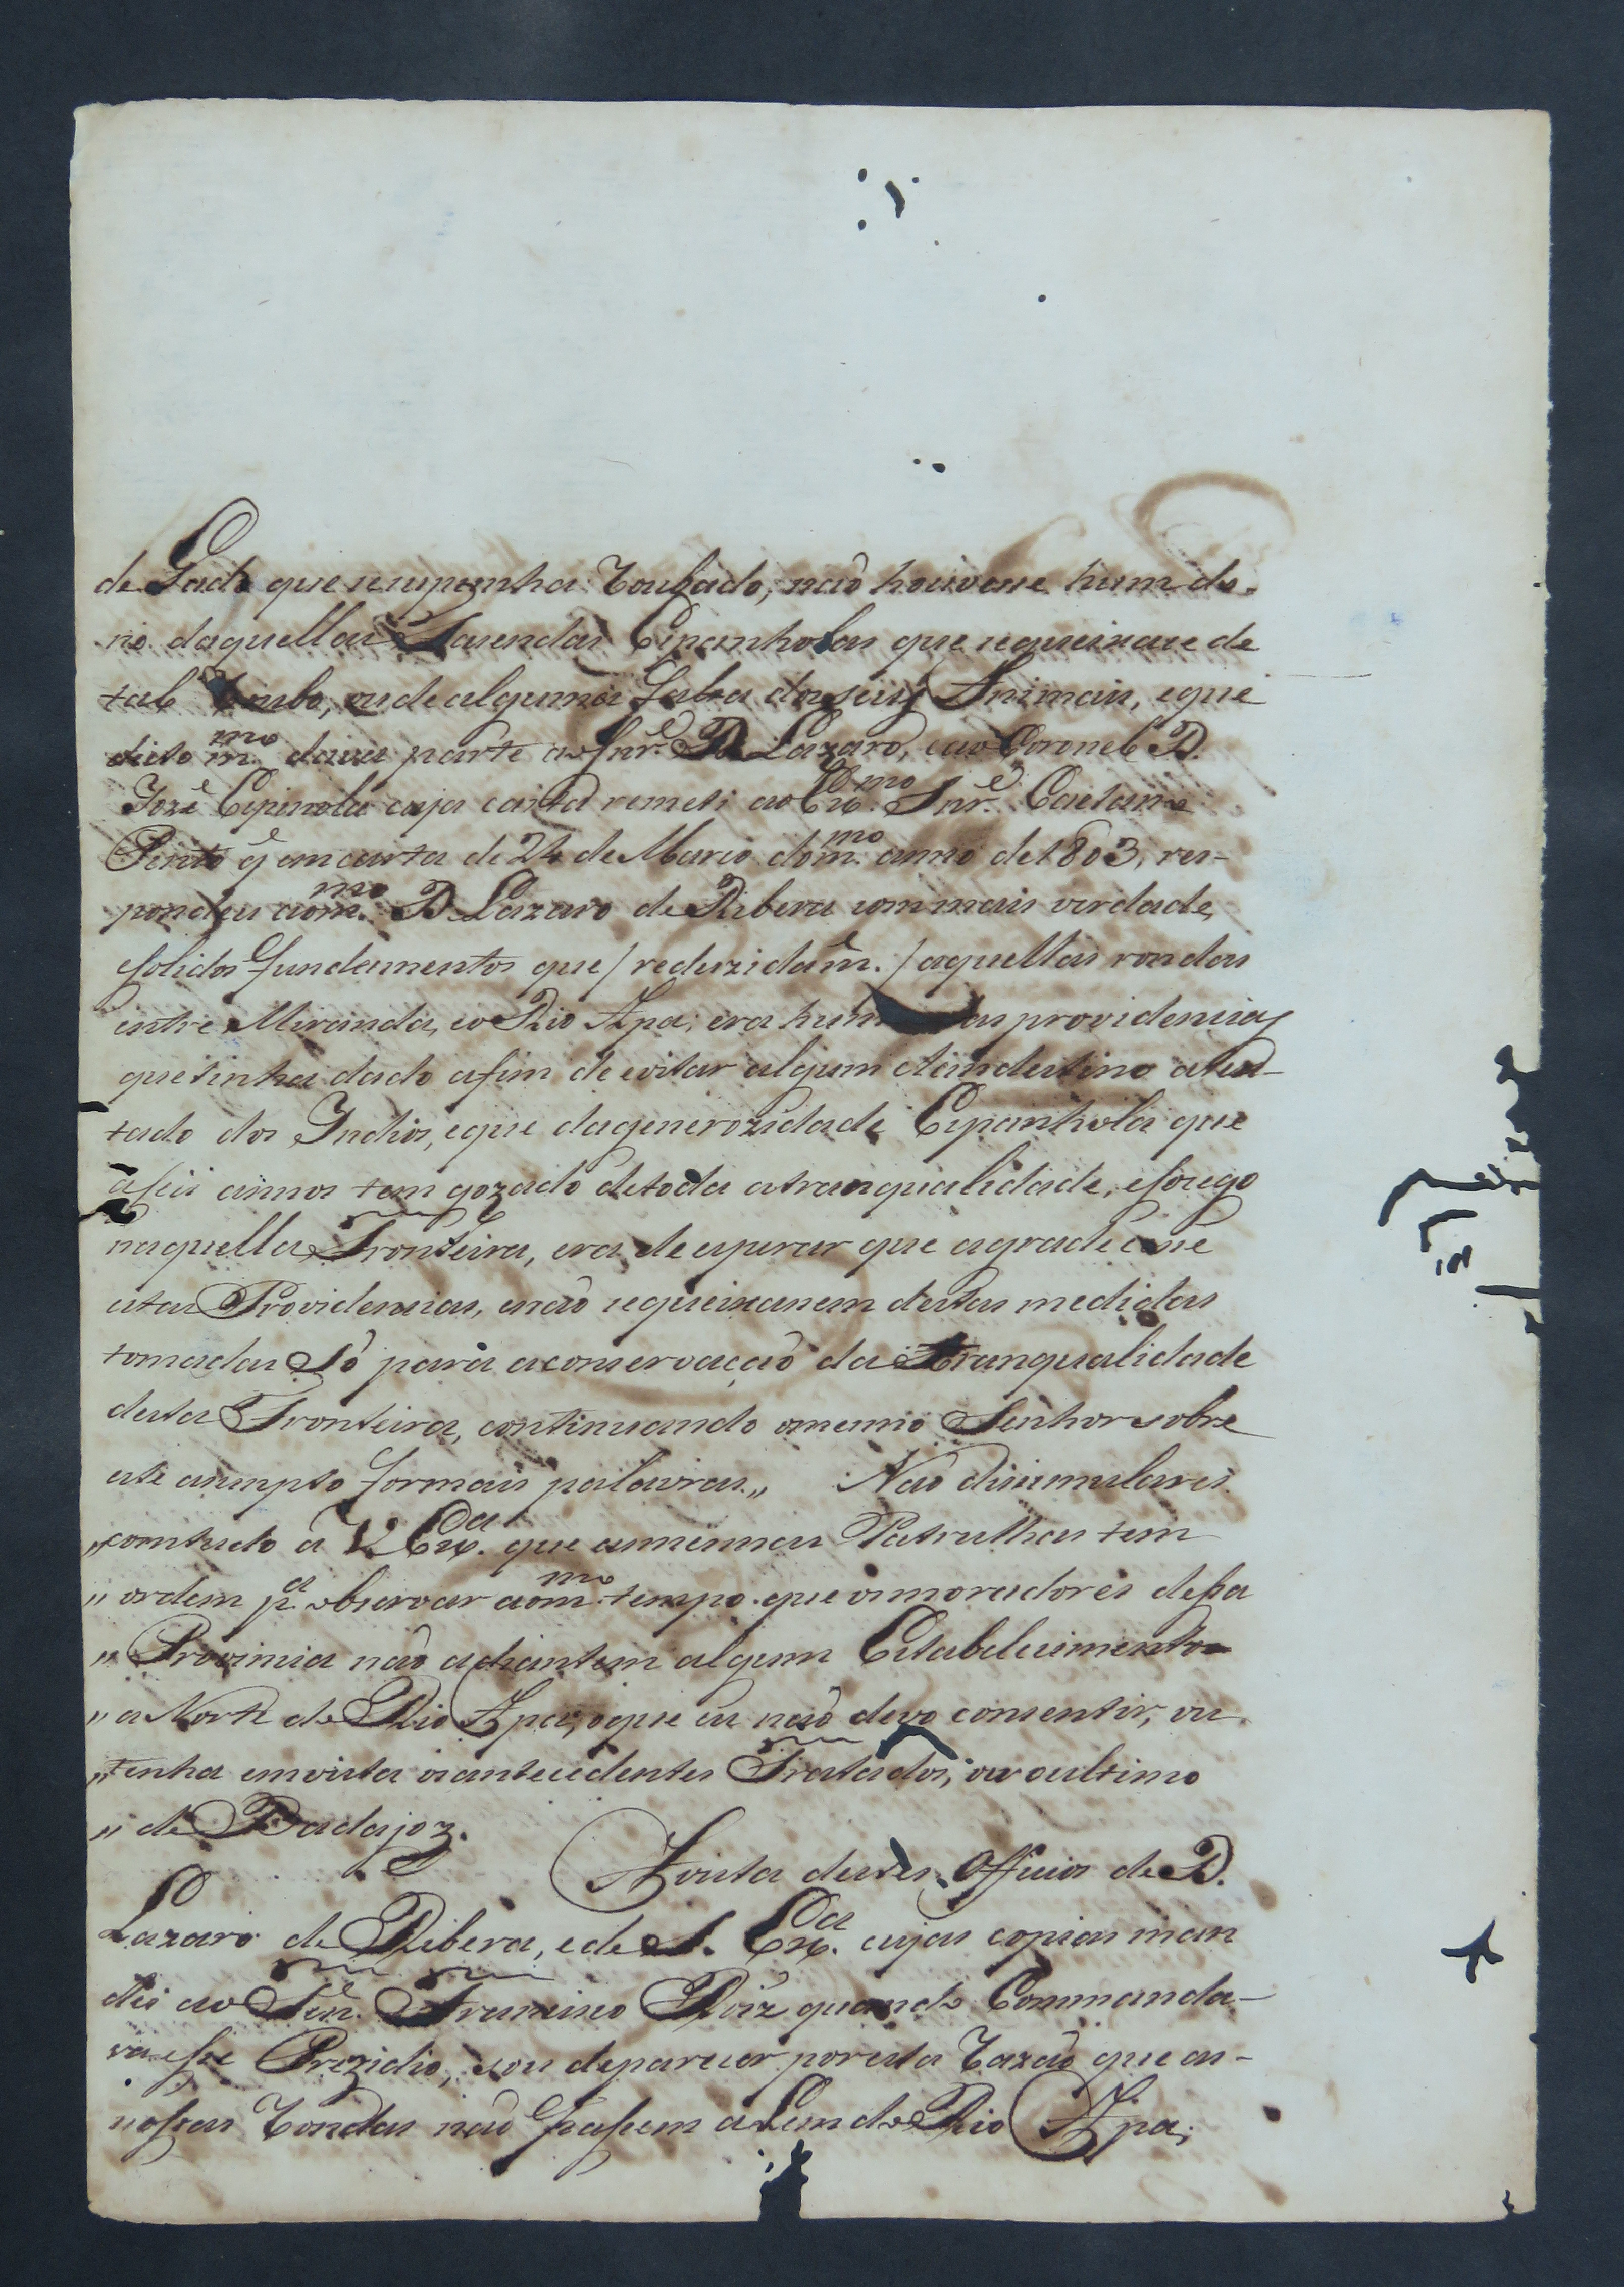 de Gado que se suponha Roubado, naõ houvesse hum do-
no daquellas Fasendas Espanholas que se queixase de
tal Roubo, ou de alguma falta dos seus Animais, e que
disto m.mo dava parte ao Snr.e D. Lazaro, e ao Coronel D.
Jozé Espinola cuja carta remeti ao Ex.mo Snr.e Caetano
Pinto q̃ em carta de 24 de Março do m.mo anno de 1803, res-
pondeu ao m.mo D. Lazaro de Ribera com mais verdade,
e solidos fundamentos que / reduzidam.e / aquellas rondas
entre Miranda, e o Rio Apa, era huma das providencias
que tinha dado afim de evitar algum clandestino aten-
tado dos Indios, e que da generozidade Espanhola que
a seis annos tem gozado de toda a tranqualidade, e socego
naquella Fronteira, era de esperar que agradecese
estas Providencias, e naõ se queixasem destas medidas
tomadas Só para a conservaçaõ da Tranqualidade
desta Fronteira, continuando o mesmo Senhor sobre
este asumpto formais palavras„ Naõ disimularei
„comtudo a V. Ex.ca que as mesmas Patrulhas tem
„ordem p.a observar ao m.mo tempo que os moradores dessa
„Provincia naõ adiantem algum Estabelecimento
„a Norte do Rio Apa, o que eu naõ devo consentir, ou
„tenha em vista os antecedentes Tratados, ou o ultimo
„de Badajoz.
A vista destes Officios de D.
Lazaro de Ribera, e de S. Ex.ca cujas copias man
dei ao Ten.e Francisco Roiz quando Commanda-
va esse Prezidio, sou de parecer por esta Razaõ que as-
nossas Rondas naõ Passem alem do Rio Apa;